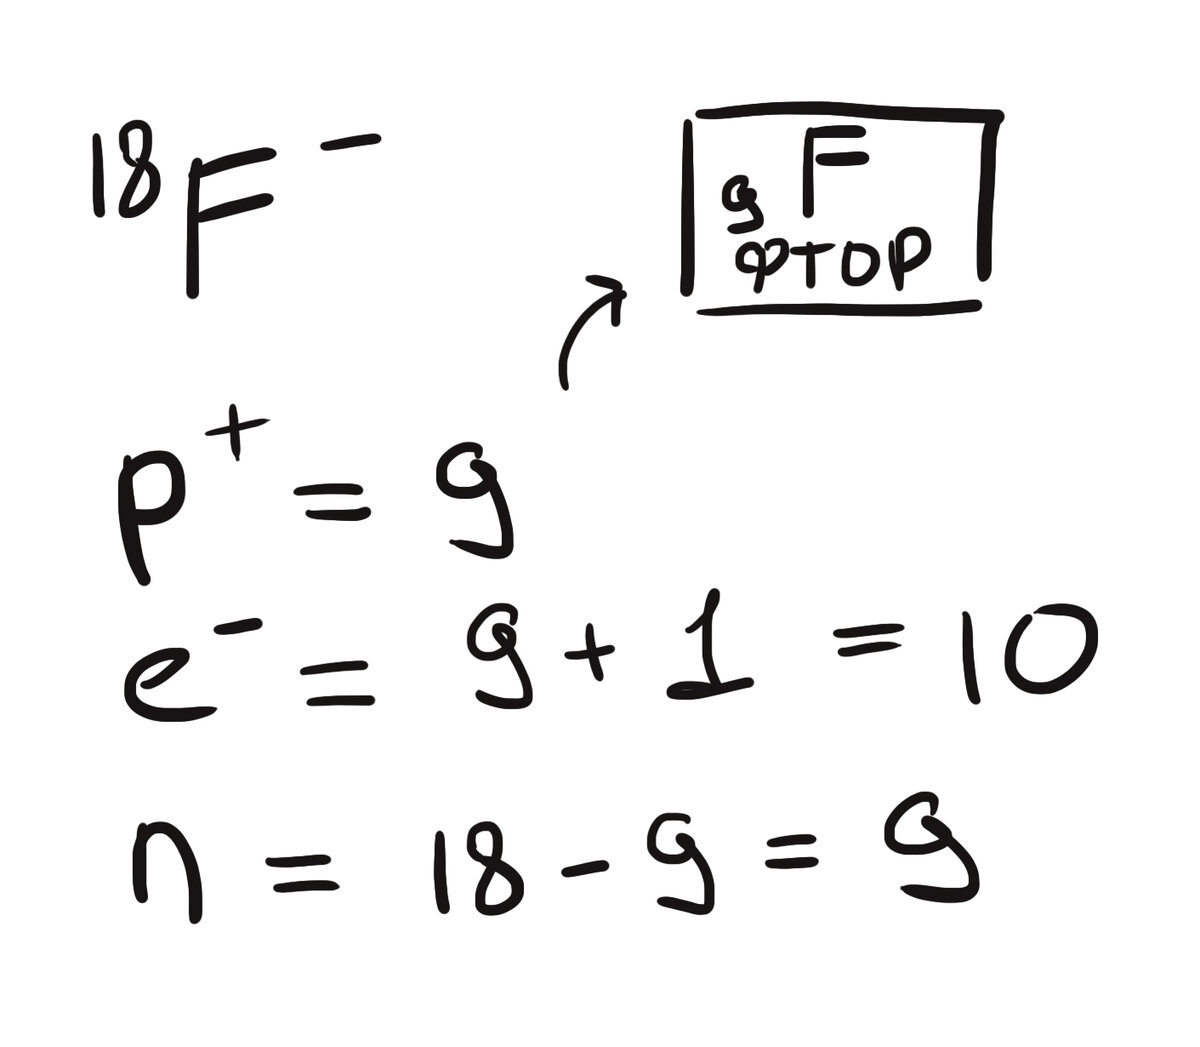 ¹⁸F⁻
F
9
ФТОР
p⁺ = 9
e⁻ = 9 + 1 = 10
n = 18 - 9 = 9